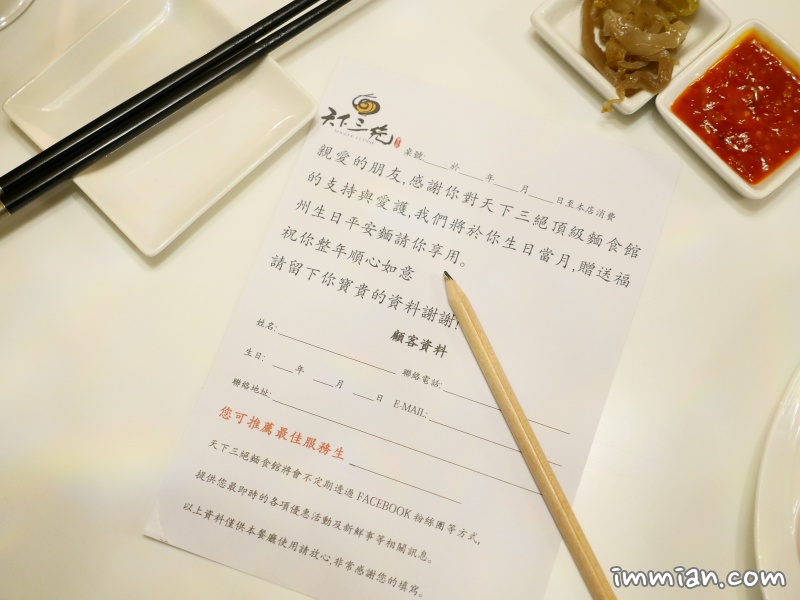 天下三絶
NOODLE CUISINE
桌號:____於____年____月____日至本店消費
親愛的朋友,感謝你對天下三絕頂級麵食館
的支持與愛護,我們將於你生日當月,贈送福
州生日平安麵請你享用。
祝你整年順心如意
請留下你寶貴的資料謝謝!
顧客資料
姓名:____ 聯絡電話:____
生日:____年____月____日 E-MAIL:____
聯絡地址:____
您可推薦最佳服務生____
天下三絕麵食館將會不定期透過FACEBOOK粉絲團等方式,
提供您最即時的各項優惠活動及新鮮事等相關訊息。
以上資料僅供本餐廳使用請放心,非常感謝您的填寫。
immian.com